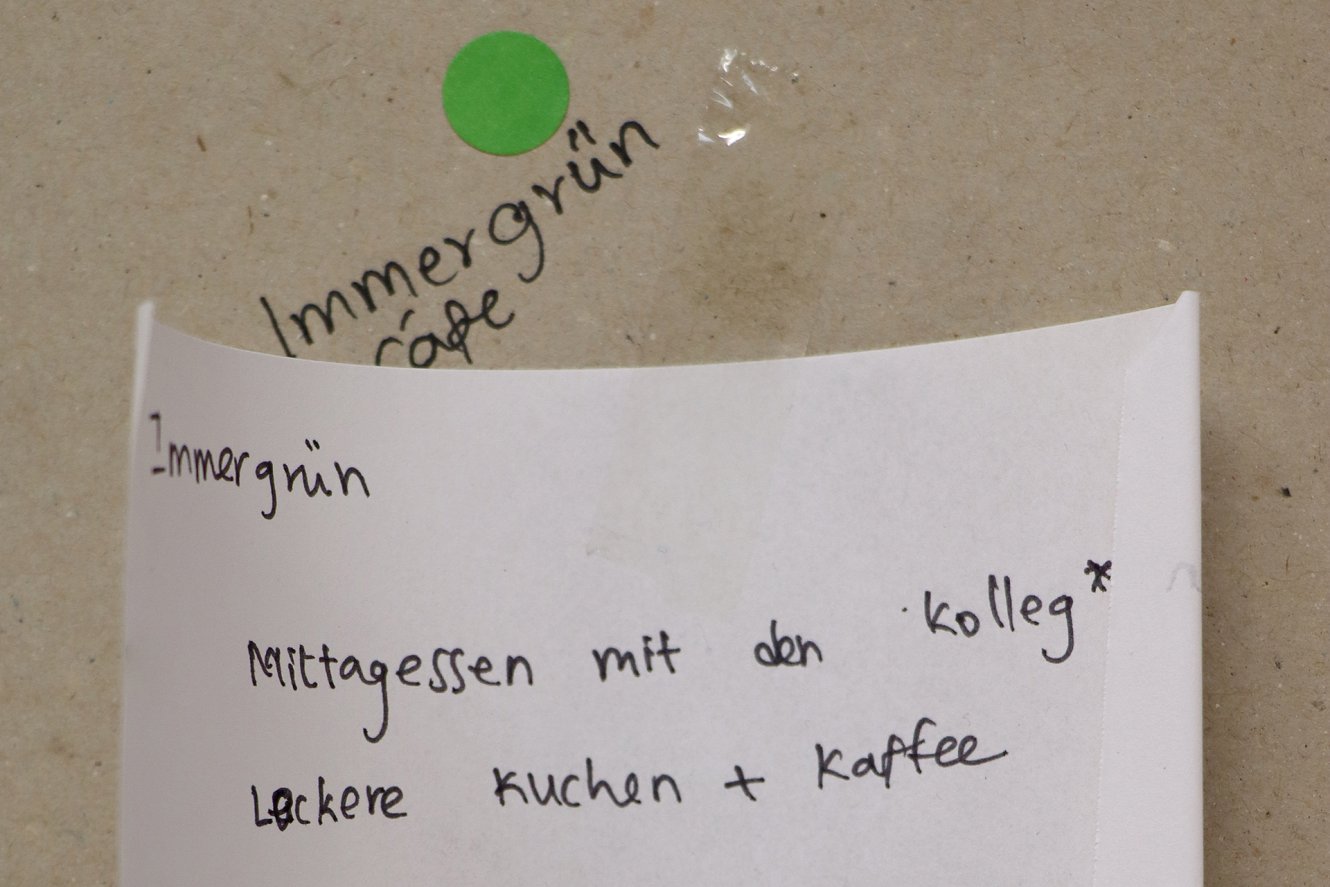 Immergrün
Café
Immergrün
Mittagessen mit den Kolleg*
Leckere Kuchen + Kaffee